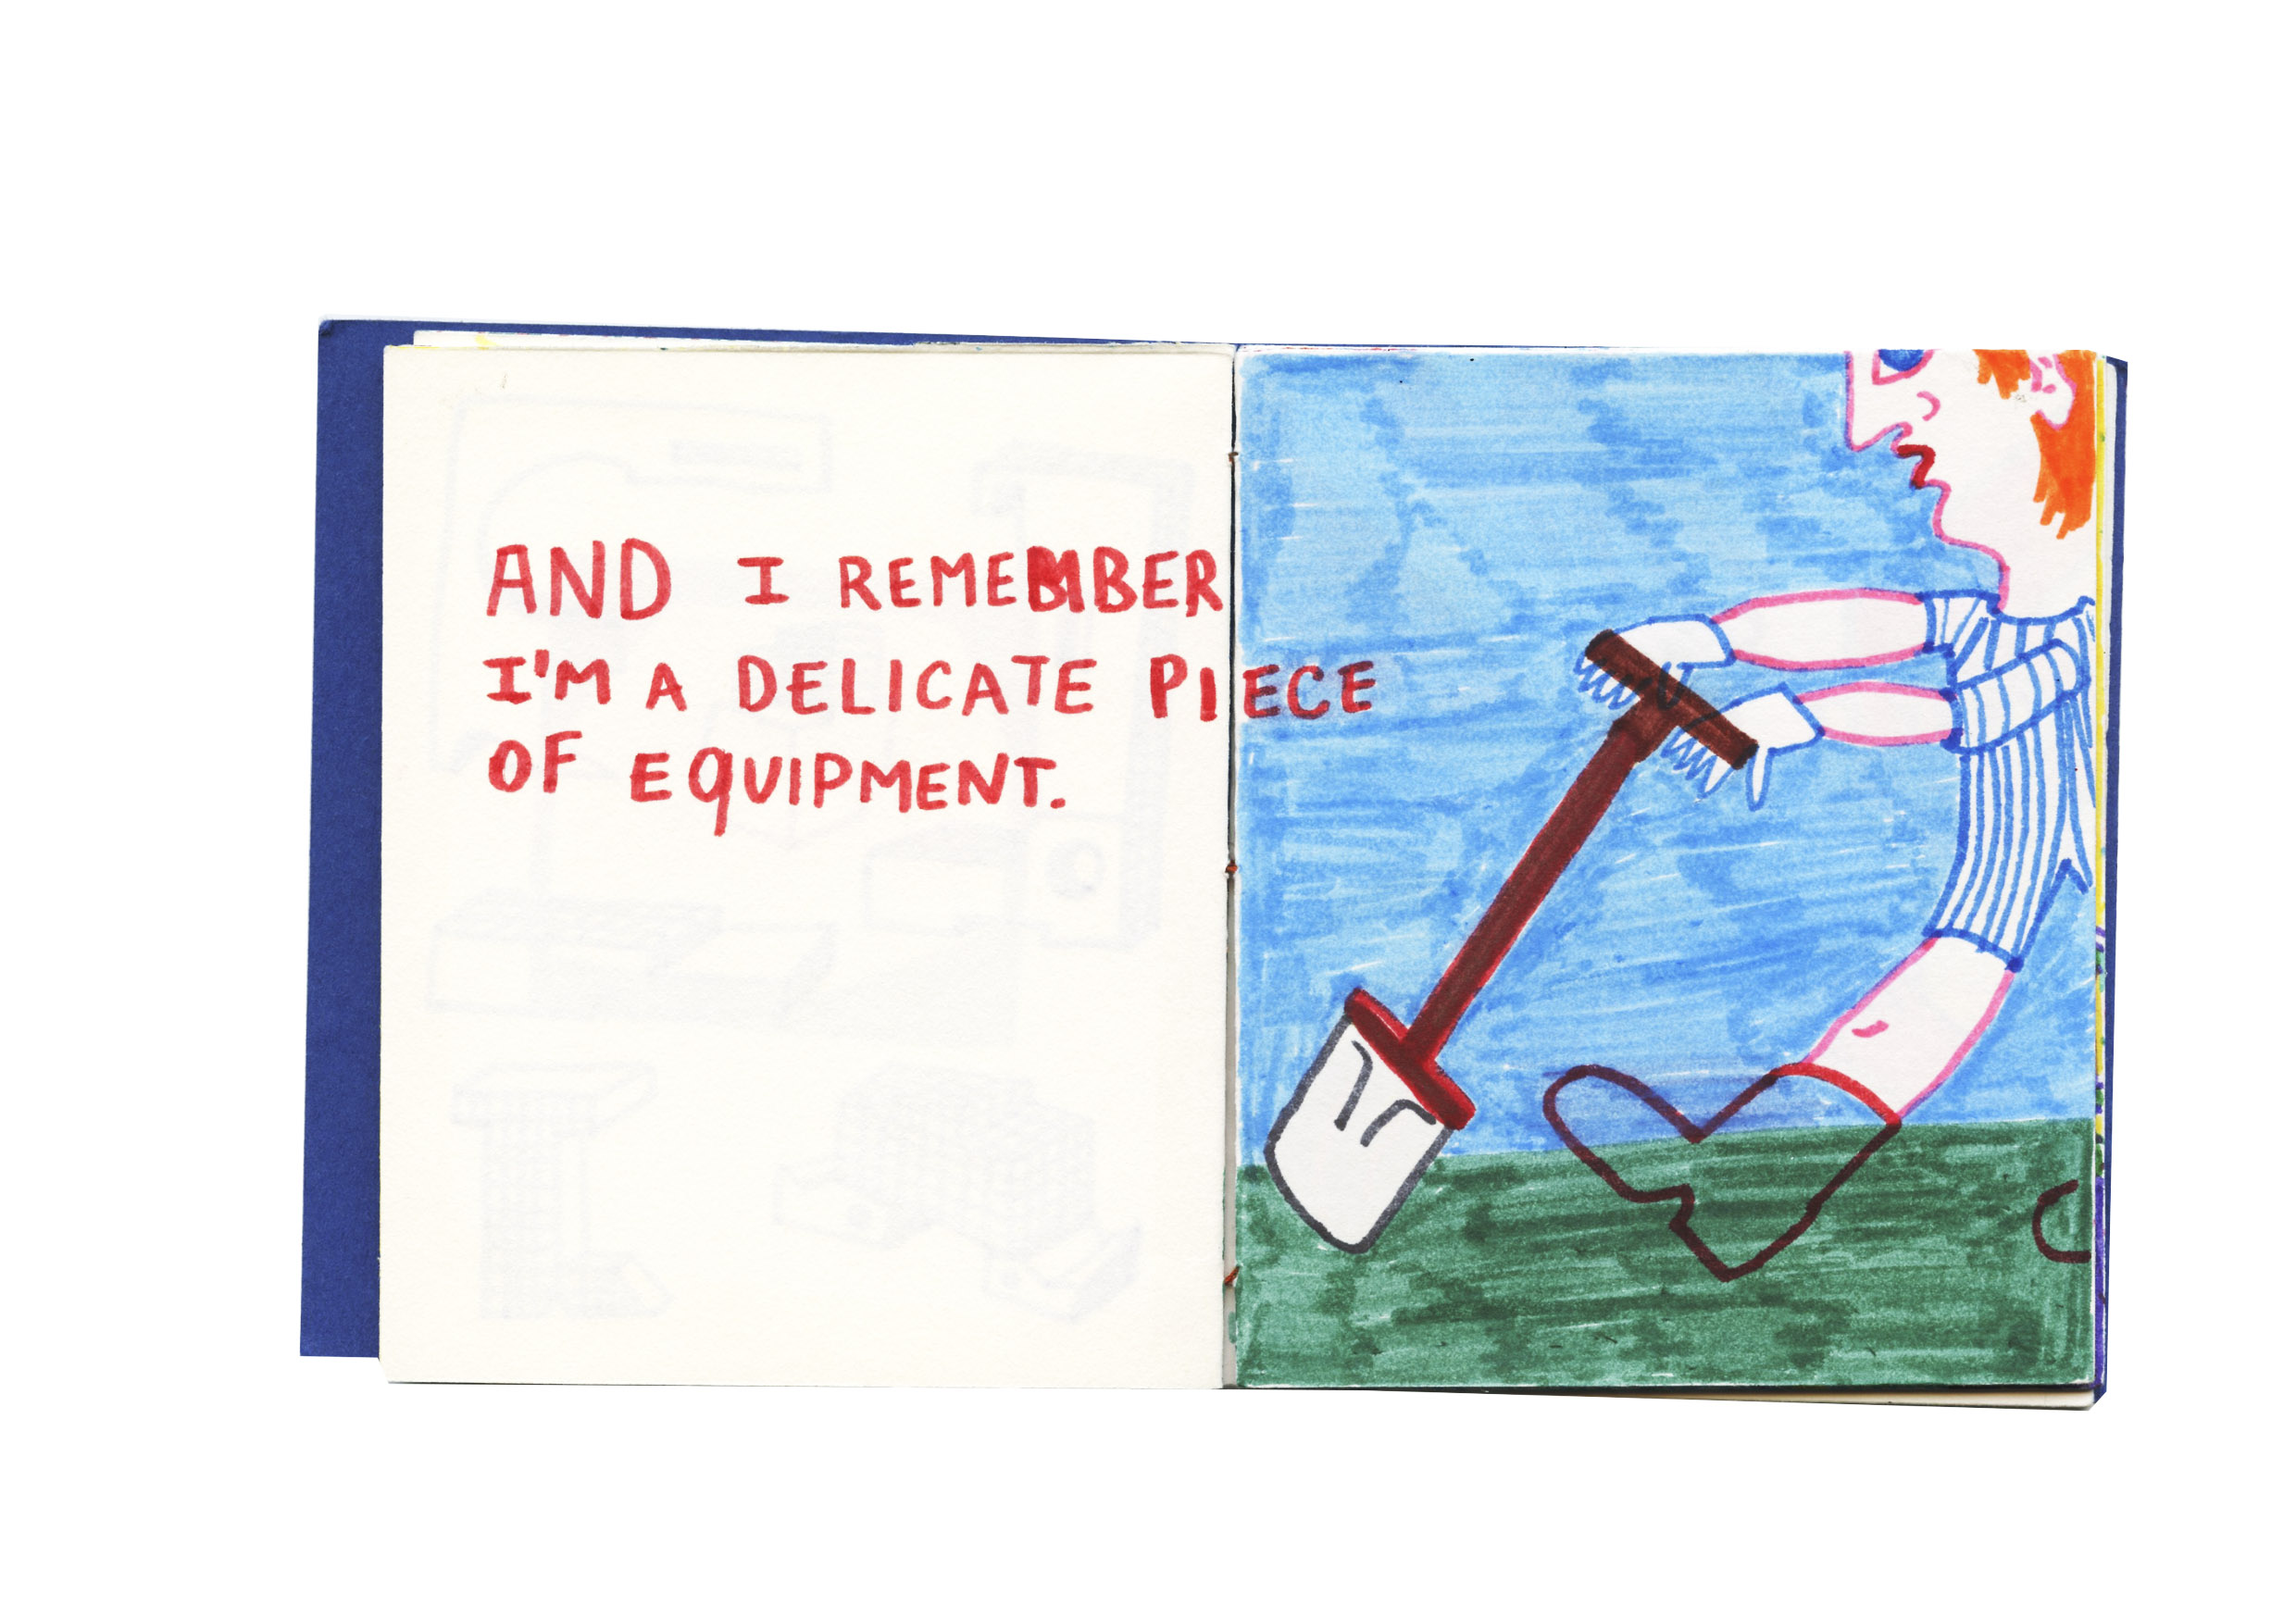 AND I REMEMBER
I'M A DELICATE PIECE
OF EQUIPMENT.